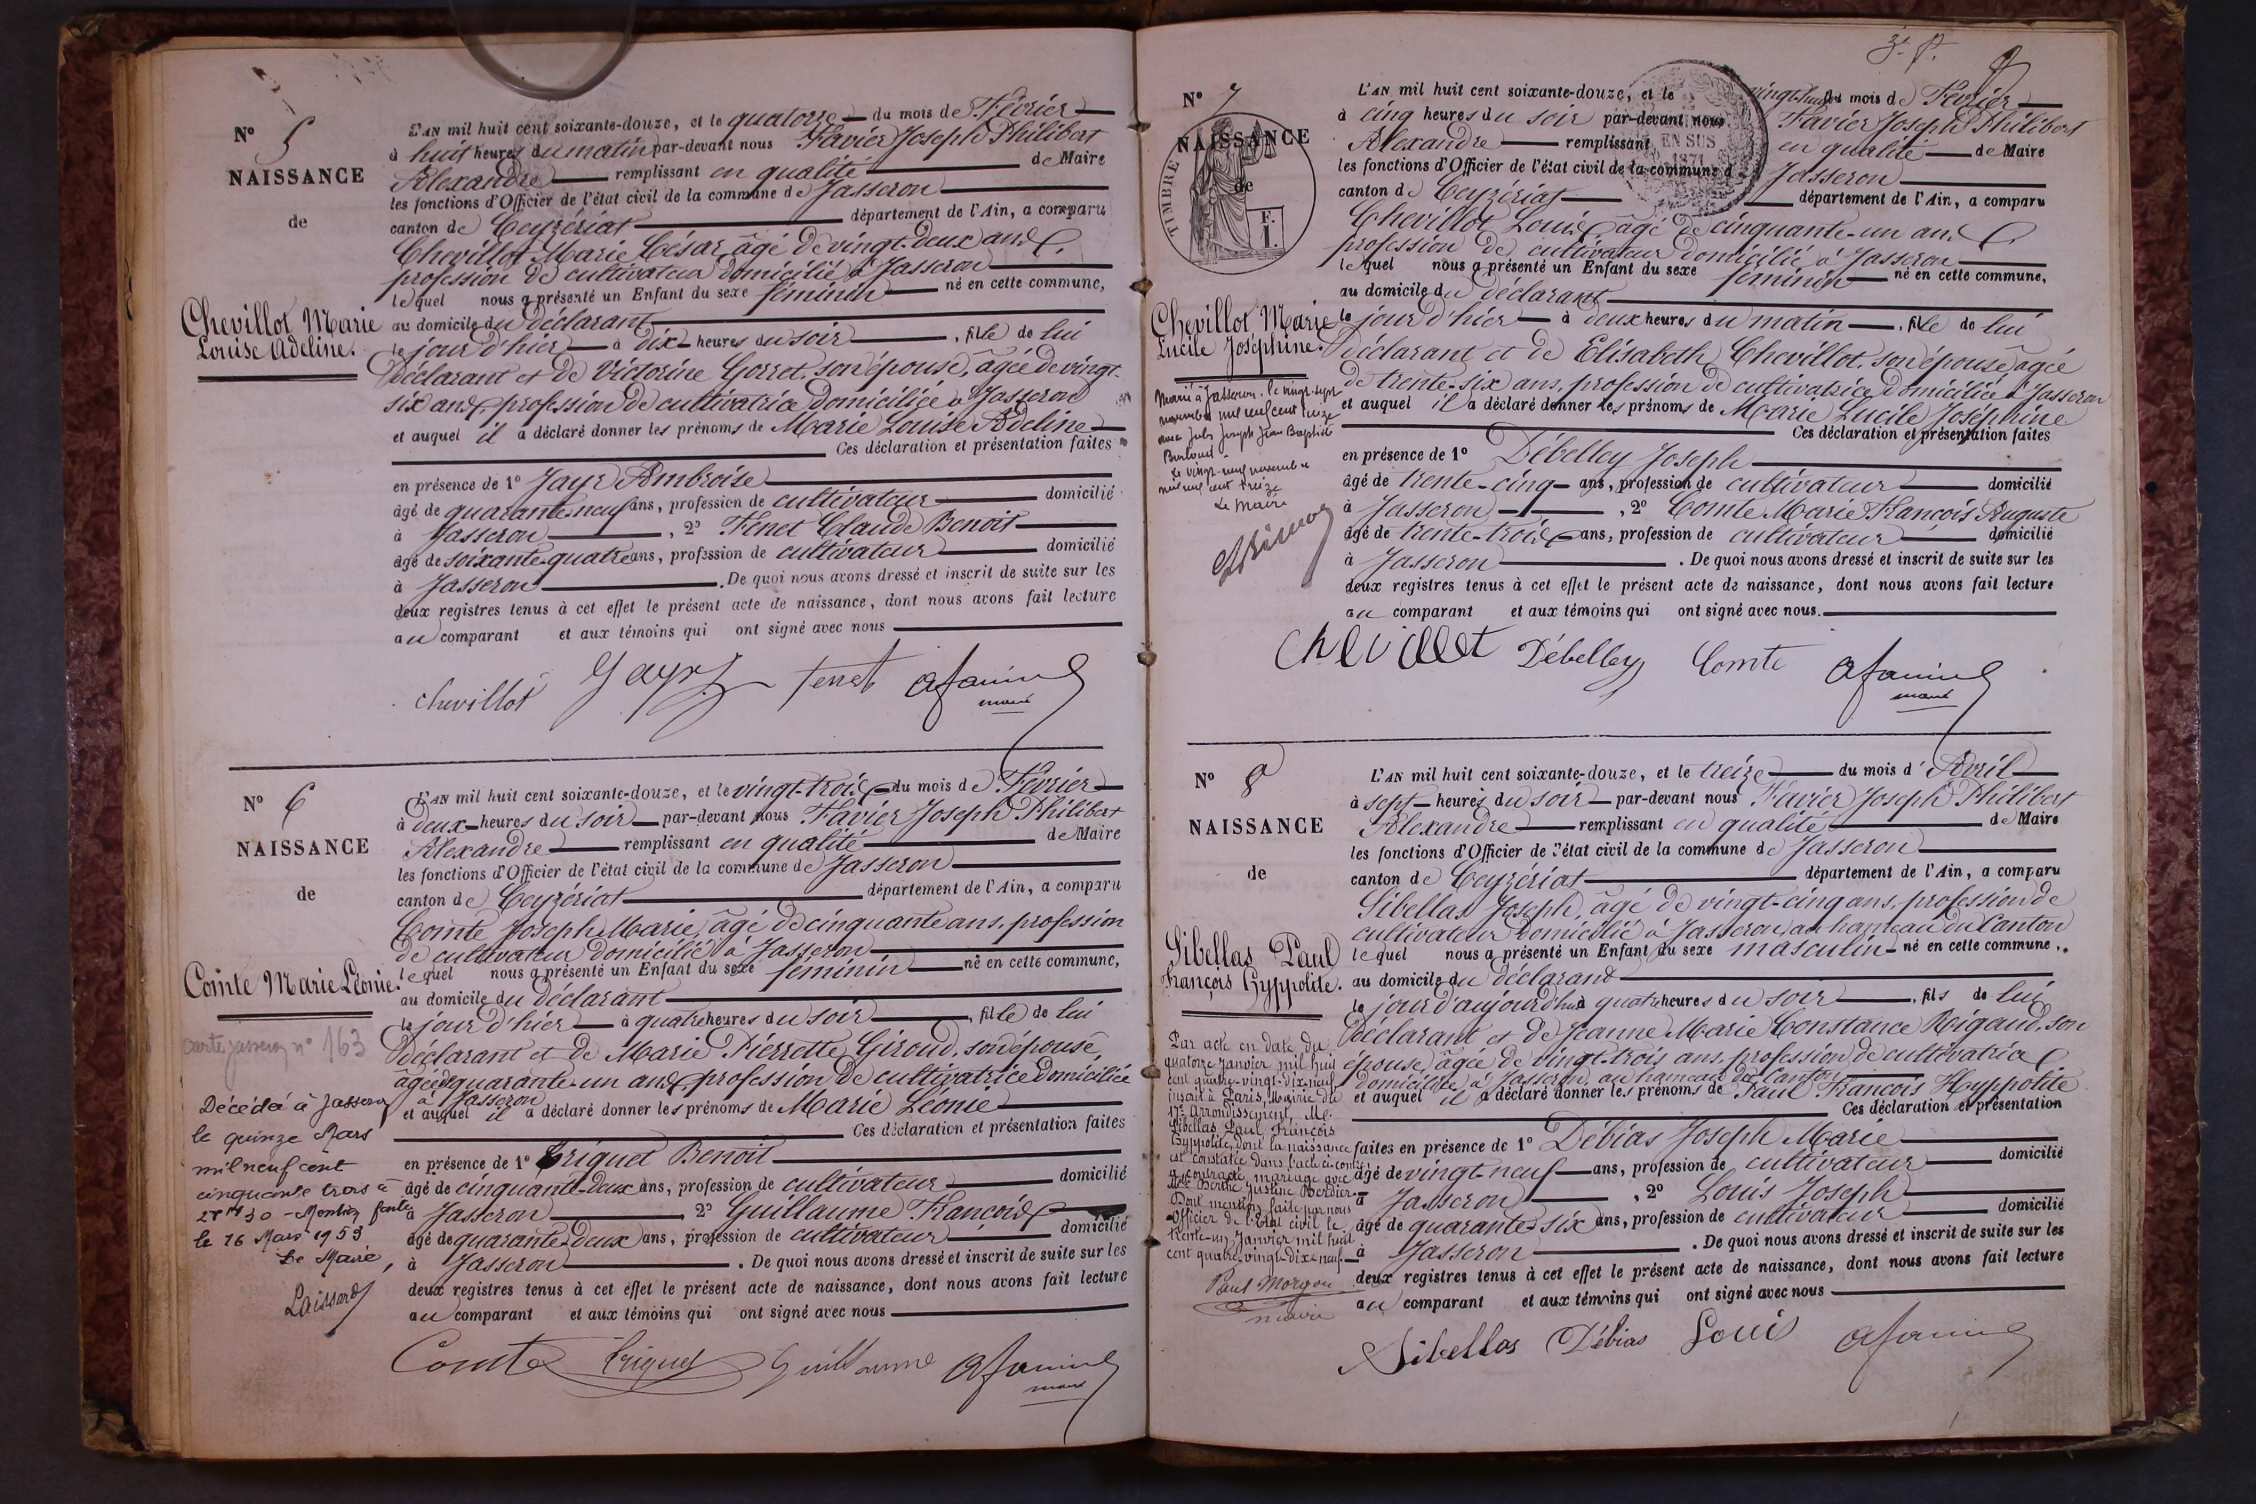 N° 5
NAISSANCE
de
Chevillot Marie
Louise Adeline.
L'AN mil huit cent soixante-douze, et le quatorze du mois de Février
à huit heures du matin par-devant nous Favier Joseph Philibert
Alexandre remplissant en qualité de Maire
les fonctions d'Officier de l'état civil de la commune de Jasseron
canton de Ceyzériat département de l'Ain, a comparu
Chevillot Marie César, âgé de vingt-deux ans,
profession de cultivateur domicilié à Jasseron
lequel nous a présenté un Enfant du sexe féminin né en cette commune,
au domicile du déclarant
le jour d'hier à dix heures du soir, fille de lui
déclarant et de Victorine Gorret, son épouse, âgée de vingt-
six ans, profession de cultivatrice domiciliée à Jasseron
et auquel il a déclaré donner les prénoms de Marie Louise Adeline
Ces déclaration et présentation faites
en présence de 1° Jayr Ambroise
âgé de quarante-neuf ans, profession de cultivateur domicilié
à Jasseron, 2° Fenet Claude Benoit
âgé de soixante-quatre ans, profession de cultivateur domicilié
à Jasseron. De quoi nous avons dressé et inscrit de suite sur les
deux registres tenus à cet effet le présent acte de naissance, dont nous avons fait lecture
au comparant et aux témoins qui ont signé avec nous
chevillot Jayr fenet afavier
maire
N° 6
NAISSANCE
de
Comte Marie Léonie.
carte jasseron n° 163
Décédée à Jasseron
le quinze Mars
mil neuf cent
cinquante trois à
Mention faite
le 16 Mars 1953
Le Maire,
L'AN mil huit cent soixante-douze, et le vingt-trois du mois de Février
à deux heures du soir par-devant nous Favier Joseph Philibert
Alexandre remplissant en qualité de Maire
les fonctions d'Officier de l'état civil de la commune de Jasseron
canton de Ceyzériat département de l'Ain, a comparu
Comte Joseph Marie, âgé de cinquante ans, profession
de cultivateur domicilié à Jasseron
lequel nous a présenté un Enfant du sexe féminin né en cette commune,
au domicile du déclarant
le jour d'hier à quatre heures du soir, fille de lui
déclarant et de Marie Pierrette Giroud, son épouse,
âgée de quarante-un ans, profession de cultivatrice domiciliée
à Jasseron
et auquel il a déclaré donner les prénoms de Marie Léonie
Ces déclaration et présentation faites
en présence de 1° Criquet Benoit
âgé de cinquante-deux ans, profession de cultivateur domicilié
à Jasseron 2° Guillaume François
âgé de quarante-deux ans, profession de cultivateur domicilié
à Jasseron. De quoi nous avons dressé et inscrit de suite sur les
deux registres tenus à cet effet le présent acte de naissance, dont nous avons fait lecture
au comparant et aux témoins qui ont signé avec nous
Comte Criquet Guillaume afavier
maire
3e f.
N° 7
NAISSANCE
de
TIMBRE
F.
EN SUS
1871
Chevillot Marie
Lucile Joséphine.
Marié à Jasseron, le vingt-sept
novembre mil neuf cent treize
avec Jules Joseph Jean Baptiste
Le vingt-neuf novembre
mil neuf cent treize
Le Maire
L'AN mil huit cent soixante-douze, et le vingt-huit du mois de Février
à cinq heures du soir par-devant nous Favier Joseph Philibert
Alexandre remplissant en qualité de Maire
les fonctions d'Officier de l'état civil de la commune de Jasseron
canton de Ceyzériat département de l'Ain, a comparu
Chevillot Louis, âgé de cinquante-un ans,
profession de cultivateur domicilié à Jasseron
lequel nous a présenté un Enfant du sexe féminin né en cette commune,
au domicile du déclarant
le jour d'hier à deux heures du matin, fille de lui
déclarant et de Elisabeth Chevillot, son épouse âgée
de trente-six ans, profession de cultivatrice domiciliée à Jasseron
et auquel il a déclaré donner les prénoms de Marie Lucile Joséphine
Ces déclaration et présentation faites
en présence de 1° Débelley Joseph
âgé de trente-cinq ans, profession de cultivateur domicilié
à Jasseron, 2° Comte Marie François Auguste
âgé de trente-trois ans, profession de cultivateur domicilié
à Jasseron. De quoi nous avons dressé et inscrit de suite sur les
deux registres tenus à cet effet le présent acte de naissance, dont nous avons fait lecture
au comparant et aux témoins qui ont signé avec nous.
chevillot Débelley Comte afavier
maire
N° 8
NAISSANCE
de
Sibellas Paul
François Hyppolite.
Par acte en date du
quatorze janvier mil huit
cent quatre-vingt-dix-neuf
inscrit à Paris, Mairie du
arrondissement, Mr.
Sibellas Paul François
Hyppolite, dont la naissance
est constatée dans l'acte ci-contre,
a contracté mariage avec
Berthe Justine Mercier.
Dont mention faite par nous
Officier de l'Etat civil le
trente-un Janvier mil huit
cent quatre-vingt-dix-neuf.
Paul Morgon
maire
L'AN mil huit cent soixante-douze, et le treize du mois d'Avril
à sept heures du soir par-devant nous Favier Joseph Philibert
Alexandre remplissant en qualité de Maire
les fonctions d'Officier de l'état civil de la commune de Jasseron
canton de Ceyzériat département de l'Ain, a comparu
Sibellas Joseph, âgé de vingt-cinq ans, profession de
cultivateur domicilié à Jasseron, au hameau du Canton
lequel nous a présenté un Enfant du sexe masculin né en cette commune,
au domicile du déclarant
le jour d'aujourd'hui à quatre heures du soir, fils de lui
déclarant et de Jeanne Marie Constance Rigaud, son
épouse, âgée de vingt-trois ans, profession de cultivatrice
domiciliée à Jasseron, au hameau du Canton
et auquel il a déclaré donner les prénoms de Paul François Hyppolite
Ces déclaration et présentation
faites en présence de 1° Débias Joseph Marie
âgé de vingt-neuf ans, profession de cultivateur domicilié
à Jasseron, 2° Louis Joseph
âgé de quarante-six ans, profession de cultivateur domicilié
à Jasseron. De quoi nous avons dressé et inscrit de suite sur les
deux registres tenus à cet effet le présent acte de naissance, dont nous avons fait lecture
au comparant et aux témoins qui ont signé avec nous
Sibellas Débias Louis afavier